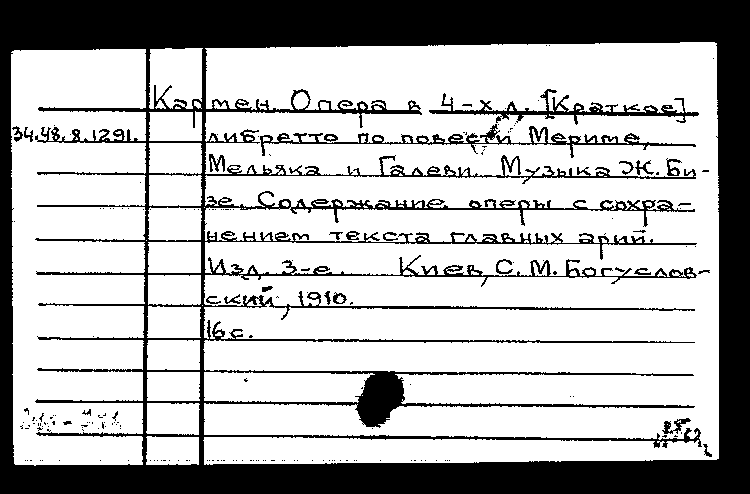 Кармен. Опера в 4-х д. [Краткое]
34.48.8.1291. либретто по повести Мериме,
Мельяка и Галеви. Музыка Ж. Би-
зе. Содержание оперы с сохра-
нением текста главных арий.
Изд. 3-е. Киев, С. М. Богуслов-
ский, 1910.
16 с.